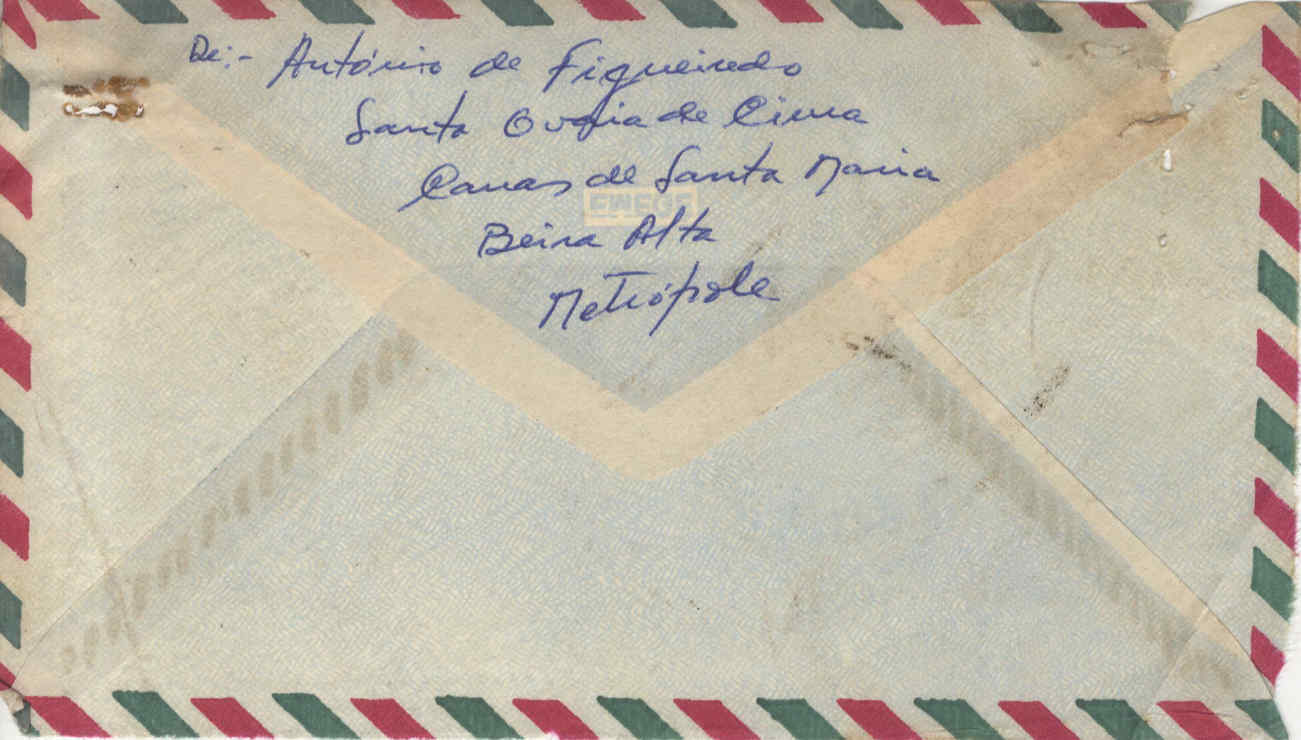 De:- António de Figueiredo
Santa Ovaia de Cima
Canas de Santa Maria
Beira Alta
Metrópole